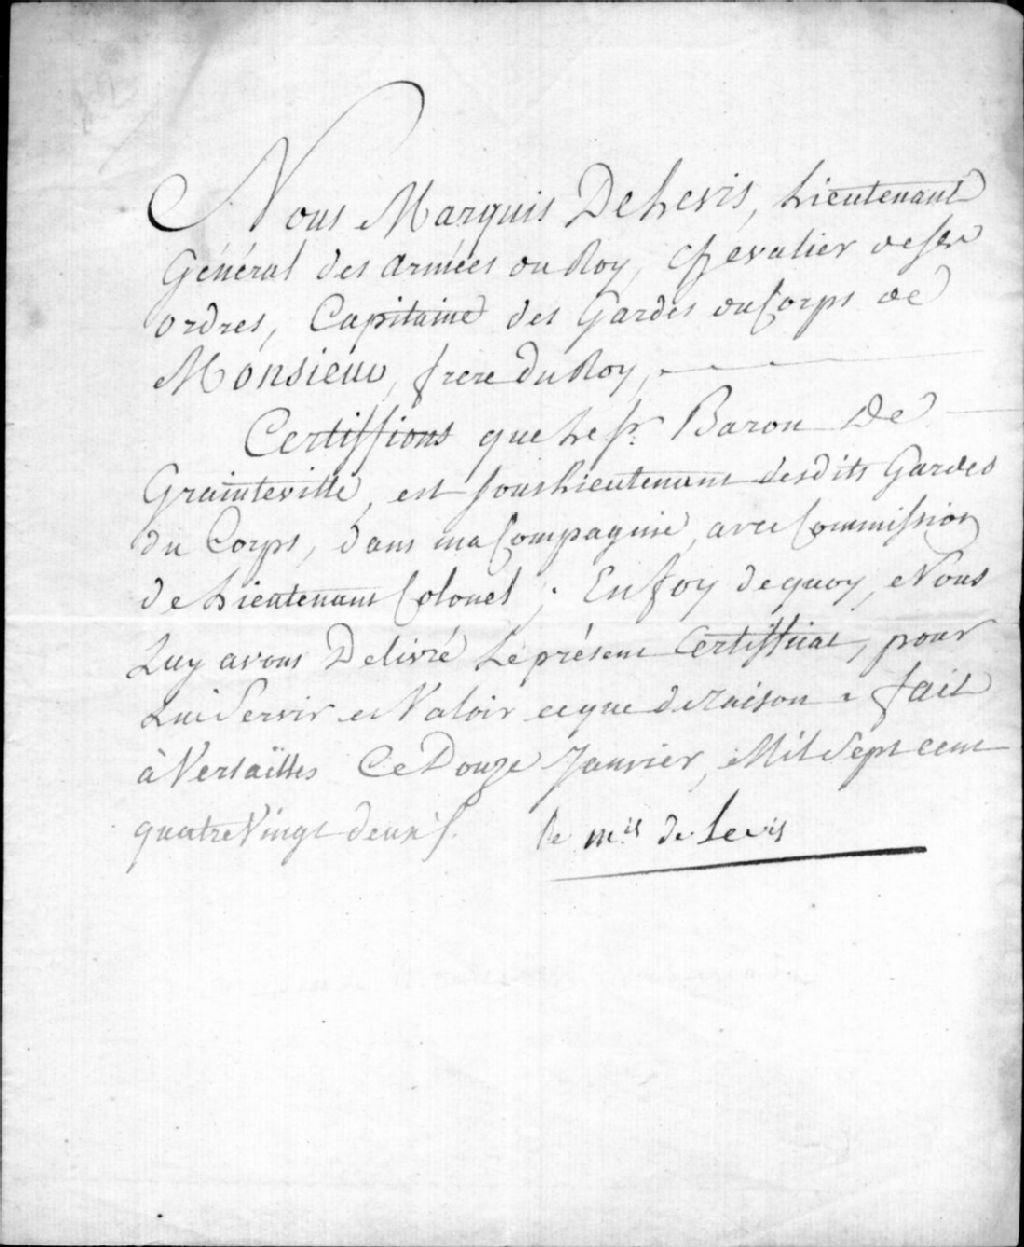 Nous Marquis De Levis, Lieutenant
Général des Armées du Roy, Chevalier de ses
ordres, Capitaine des Gardes du Corps de
Monsieur, frere Du Roy,
Certiffions que Le Sr. Baron De
Grainteville, est sous Lieutenant desdits Gardes
du Corps, dans ma Compagnie, avec Commission
de Lieutenant Colonel ; En foy de quoy, Nous
Luy avons Delivré Le présent Certifficat, pour
Lui Servir et Valoir ce que de raison. fait
à Versailles Ce Douze Janvier, Mil Sept cent
quatre Vingt deux /.
le mis de Levis